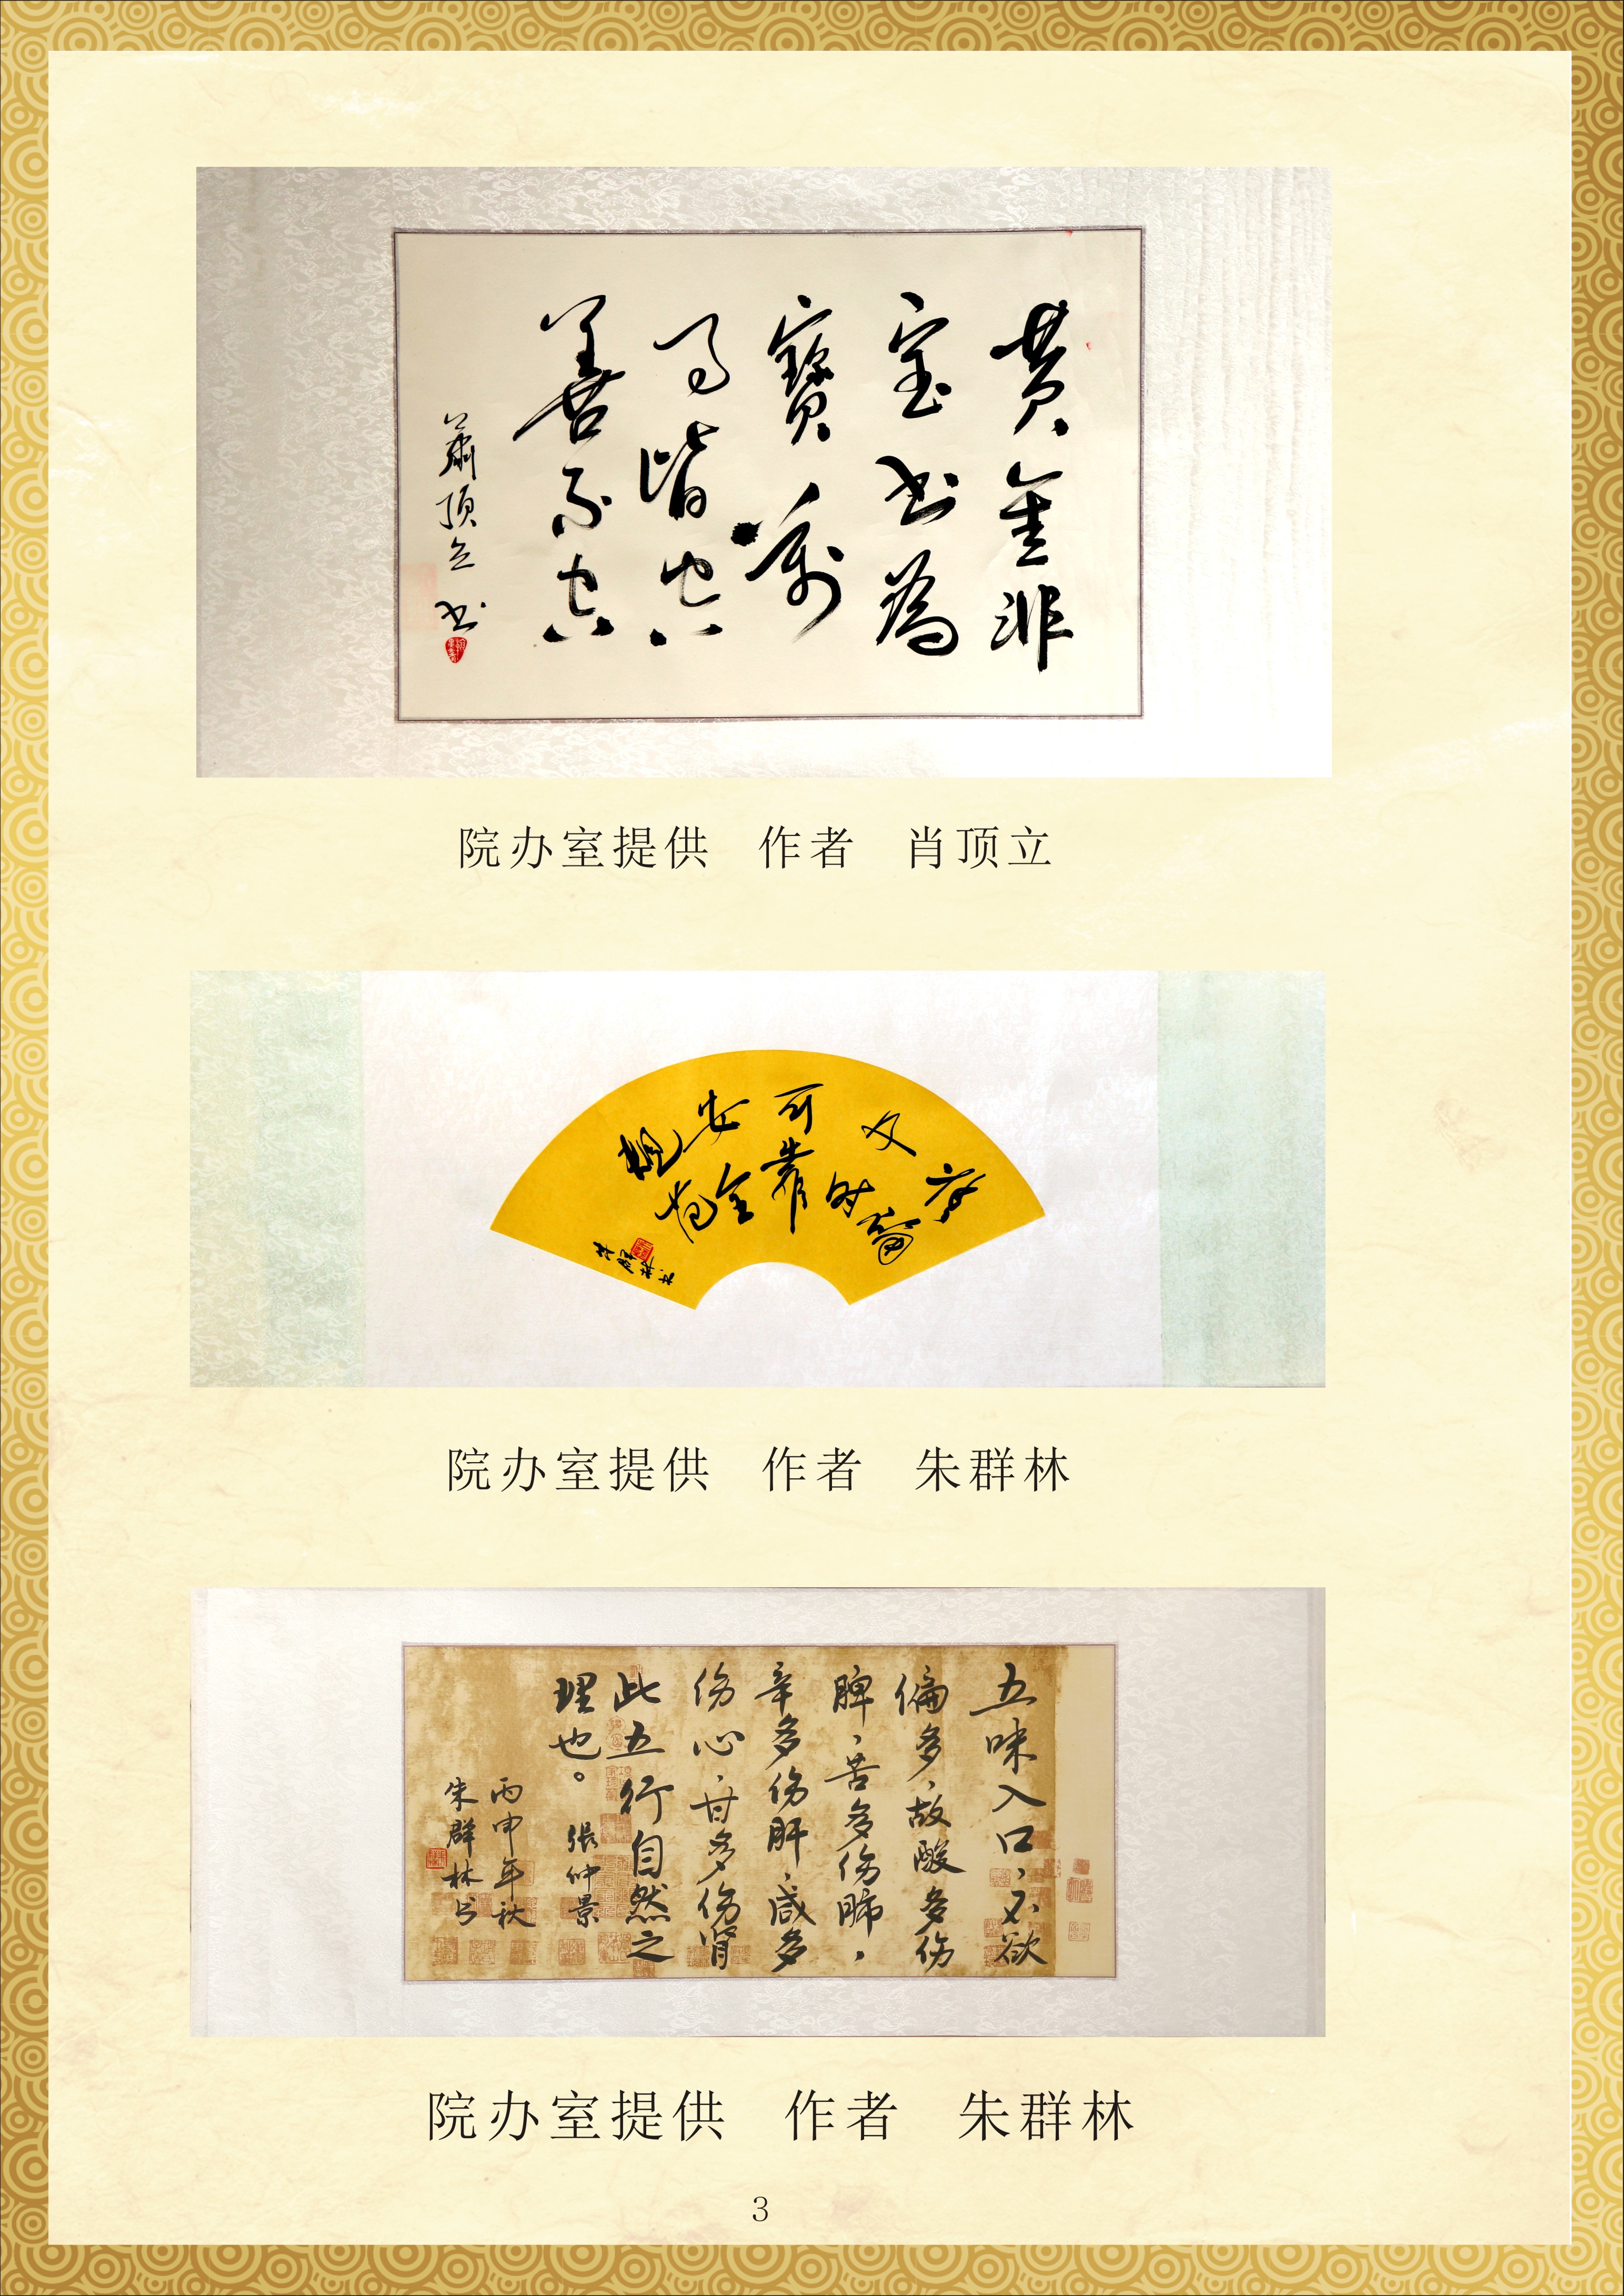 黄金非
宝书為
寶萬
事皆空
善不空
蕭顶立书
院办室提供 作者 肖顶立
可靠
安全
院办室提供 作者 朱群林
五味入口，不欲
偏多，故酸多伤
脾，苦多伤肺，
辛多伤肝，咸多
伤心，甘多伤肾
此五行自然之
理也。張仲景
丙申年秋
朱群林书
院办室提供 作者 朱群林
3